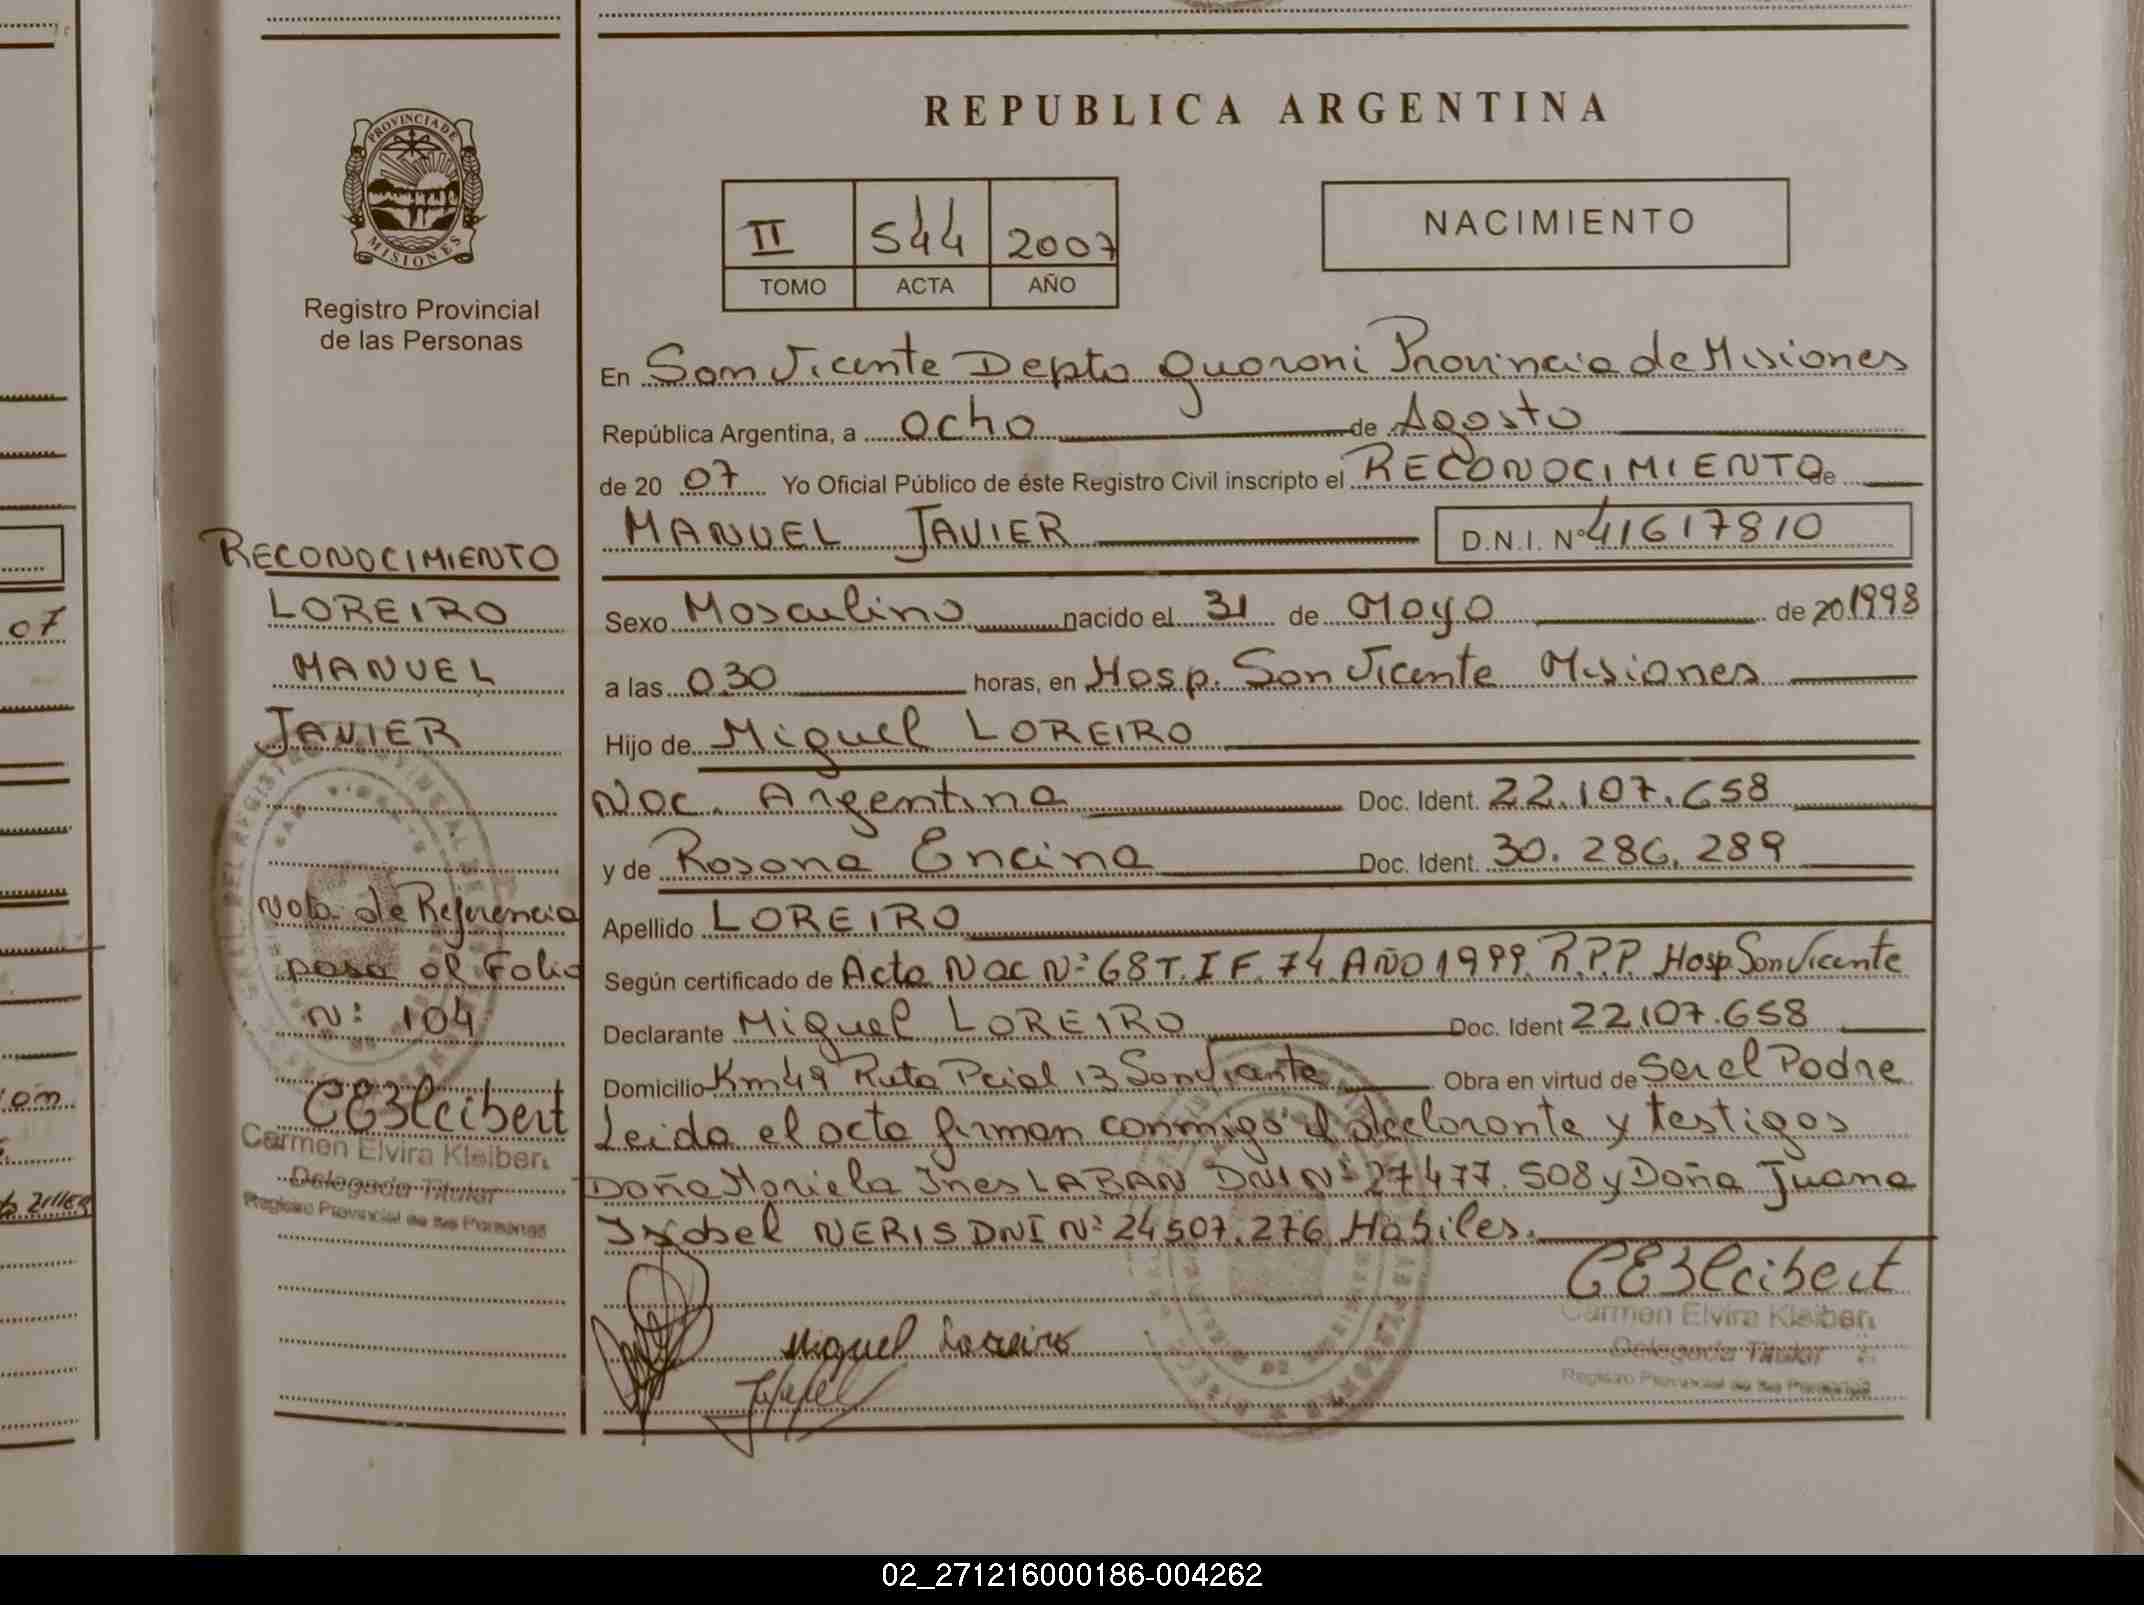 REPUBLICA ARGENTINA
PROVINCIA DE
MISIONES
Registro Provincial
de las Personas
II 544 2007
TOMO ACTA AÑO
NACIMIENTO
En San Vicente Depto Guarani Provincia de Misiones
República Argentina, a ocho de Agosto
de 20 07 Yo Oficial Público de éste Registro Civil inscripto el RECONOCIMIENTO de
MANUEL JAVIER D.N.I. Nº 41617810
Sexo Masculino nacido el 31 de Mayo de 20 1998
a las 0.30 horas, en Hosp. San Vicente Misiones
Hijo de Miguel LOREIRO
Nac. Argentina Doc. Ident. 22.107.658
y de Rosana Encina Doc. Ident. 30.286.289
Apellido LOREIRO
Según certificado de Acta Nac Nº 68 T. I F. 74 AÑO 1999 R.P.P. Hosp San Vicente
Declarante Miguel LOREIRO Doc. Ident 22.107.658
Domicilio Km 49 Ruta Pcial 13 San Vicente Obra en virtud de Ser el Padre
Leida el acta firman conmigo el declarante y testigos
Doña Mariela Ines LABAN DNI Nº 27.477.508 y Doña Juana
Isabel NERIS DNI Nº 24.507.276 Habiles.
Miguel Loreiro
CEKleibert
Carmen Elvira Kleibert
Delegada Titular
Registro Provincial de las Personas
RECONOCIMIENTO
LOREIRO
MANUEL
JAVIER
Nota de Referencia
pasa al Folio
Nº 104
CEKleibert
Carmen Elvira Kleibert
Delegada Titular
Registro Provincial de las Personas
07
02_271216000186-004262